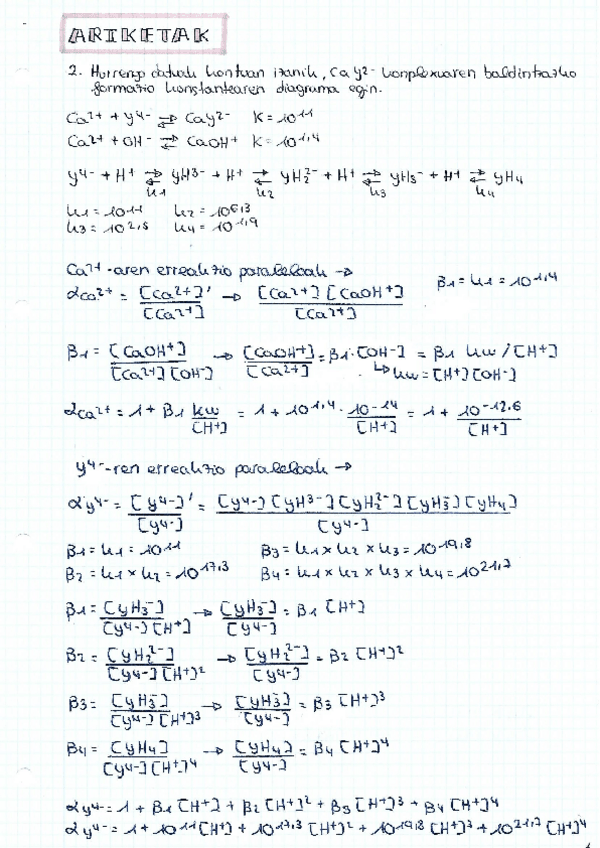 ARIKETAK
2. Hurrengo datuak kontuan izanik, CaY²⁻ konplexuaren baldintzazko
formazio konstantearen diagrama egin.
Ca²⁺ + Y⁴⁻ ⇌ CaY²⁻ K = 10¹¹
Ca²⁺ + OH⁻ ⇌ CaOH⁺ K = 10¹,⁴
Y⁴⁻ + H⁺ ⇌ YH³⁻ + H⁺ ⇌ YH₂²⁻ + H⁺ ⇌ YH₃⁻ + H⁺ ⇌ YH₄
K₁ K₂ K₃ K₄
K₁ = 10¹¹ K₂ = 10⁶,³
K₃ = 10²,⁵ K₄ = 10¹,⁹
Ca²⁺-aren erreakzio paraleloak →
αCa²⁺ = [Ca²⁺]' / [Ca²⁺] → [Ca²⁺] [CaOH⁺] / [Ca²⁺] β₁ = K₁ = 10¹,⁴
β₁ = [CaOH⁺] / [Ca²⁺] [OH⁻] → [CaOH⁺] / [Ca²⁺] = β₁·[OH⁻] = β₁ Kw / [H⁺]
↳ Kw = [H⁺] [OH⁻]
αCa²⁺ = 1 + β₁ Kw / [H⁺] = 1 + 10¹,⁴ · 10⁻¹⁴ / [H⁺] = 1 + 10⁻¹².⁶ / [H⁺]
Y⁴⁻-ren erreakzio paraleloak →
αY⁴⁻ = [Y⁴⁻]' / [Y⁴⁻] = [Y⁴⁻] [YH³⁻] [YH₂²⁻] [YH₃⁻] [YH₄] / [Y⁴⁻]
β₁ = K₁ = 10¹¹ β₃ = K₁ × K₂ × K₃ = 10¹⁹,⁸
β₂ = K₁ × K₂ = 10¹⁷,³ β₄ = K₁ × K₂ × K₃ × K₄ = 10²¹,⁷
β₁ = [YH₃⁻] / [Y⁴⁻] [H⁺] → [YH₃⁻] / [Y⁴⁻] = β₁ [H⁺]
β₂ = [YH₂²⁻] / [Y⁴⁻] [H⁺]² → [YH₂²⁻] / [Y⁴⁻] = β₂ [H⁺]²
β₃ = [YH₃⁻] / [Y⁴⁻] [H⁺]³ → [YH₃⁻] / [Y⁴⁻] = β₃ [H⁺]³
β₄ = [YH₄] / [Y⁴⁻] [H⁺]⁴ → [YH₄] / [Y⁴⁻] = β₄ [H⁺]⁴
αY⁴⁻ = 1 + β₁ [H⁺] + β₂ [H⁺]² + β₃ [H⁺]³ + β₄ [H⁺]⁴
αY⁴⁻ = 1 + 10¹¹ [H⁺] + 10¹⁷,³ [H⁺]² + 10¹⁹,⁸ [H⁺]³ + 10²¹,⁷ [H⁺]⁴